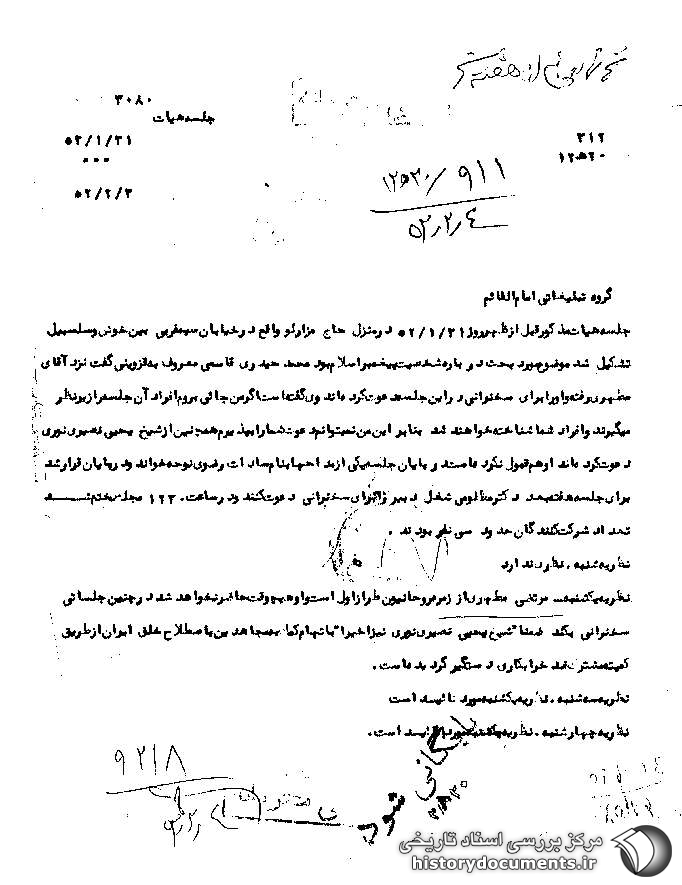 ۳۰۸۰
جلسه هیات
۵۲/۱/۳۱
۳۱۲
۱۲ﻫ۲۰
۵۲/۲/۳
۱۲ﻫ۳۰/۹۱۱
۵۲٫۲٫۴
گروه تبلیغاتی امام القائم
جلسه هیات مذکور قبل از ظهر روز ۵۲/۱/۳۱ در منزل حاج واقع در خیابان بین خوش و سلسبیل
تشکیل شد موضوع مورد بحث در باره شخصیت پیغمبر اسلام بود محمد حیدری قاسمی معروف به قزوینی گفت نزد آقای
مطهری رفته و او را برای سخنرانی در این جلسه دعوت کرده اند وی گفته است اگر من جائی بروم افراد آن جلسه را زیر نظر
میگیرند و افراد شما شناخته خواهند شد بنابر این من نمیتوانم دعوت شما را بپذیرم همچنین از شیخ یحیی نصیری نوری
دعوت کرده اند او هم قبول نکرده است در پایان جلسه یکی از مداحها بنام سادات رضوی نوحه خواند و در پایان قرار شد
برای جلسه هفته بعد دکتر مظلومی شغل دبیر را برای سخنرانی دعوت کنند و در ساعت ۱۲۳۰ مجلس ختم شد
تعداد شرکت کنندگان حدود سی نفر بودند .
نظریه شنبه . نظری ندارد
نظریه یکشنبه . مرتضی مطهری از زمره روحانیون طراز اول است و هیچوقت حاضر نخواهد شد در چنین جلساتی
سخنرانی بکند ضمنا شیخ یحیی نصیری نوری نیز اخیرا باتهام کمک به مجاهدین باصطلاح خلق ایران از طریق
کمیته مشترک ضد خرابکاری دستگیر گردیده است .
نظریه سه شنبه . نظریه یکشنبه مورد تائید است
نظریه چهارشنبه . نظریه یکشنبه مورد تائید است .
بایگانی شود
۹۲۱۸
مرکز بررسی اسناد تاریخی
historydocuments.ir